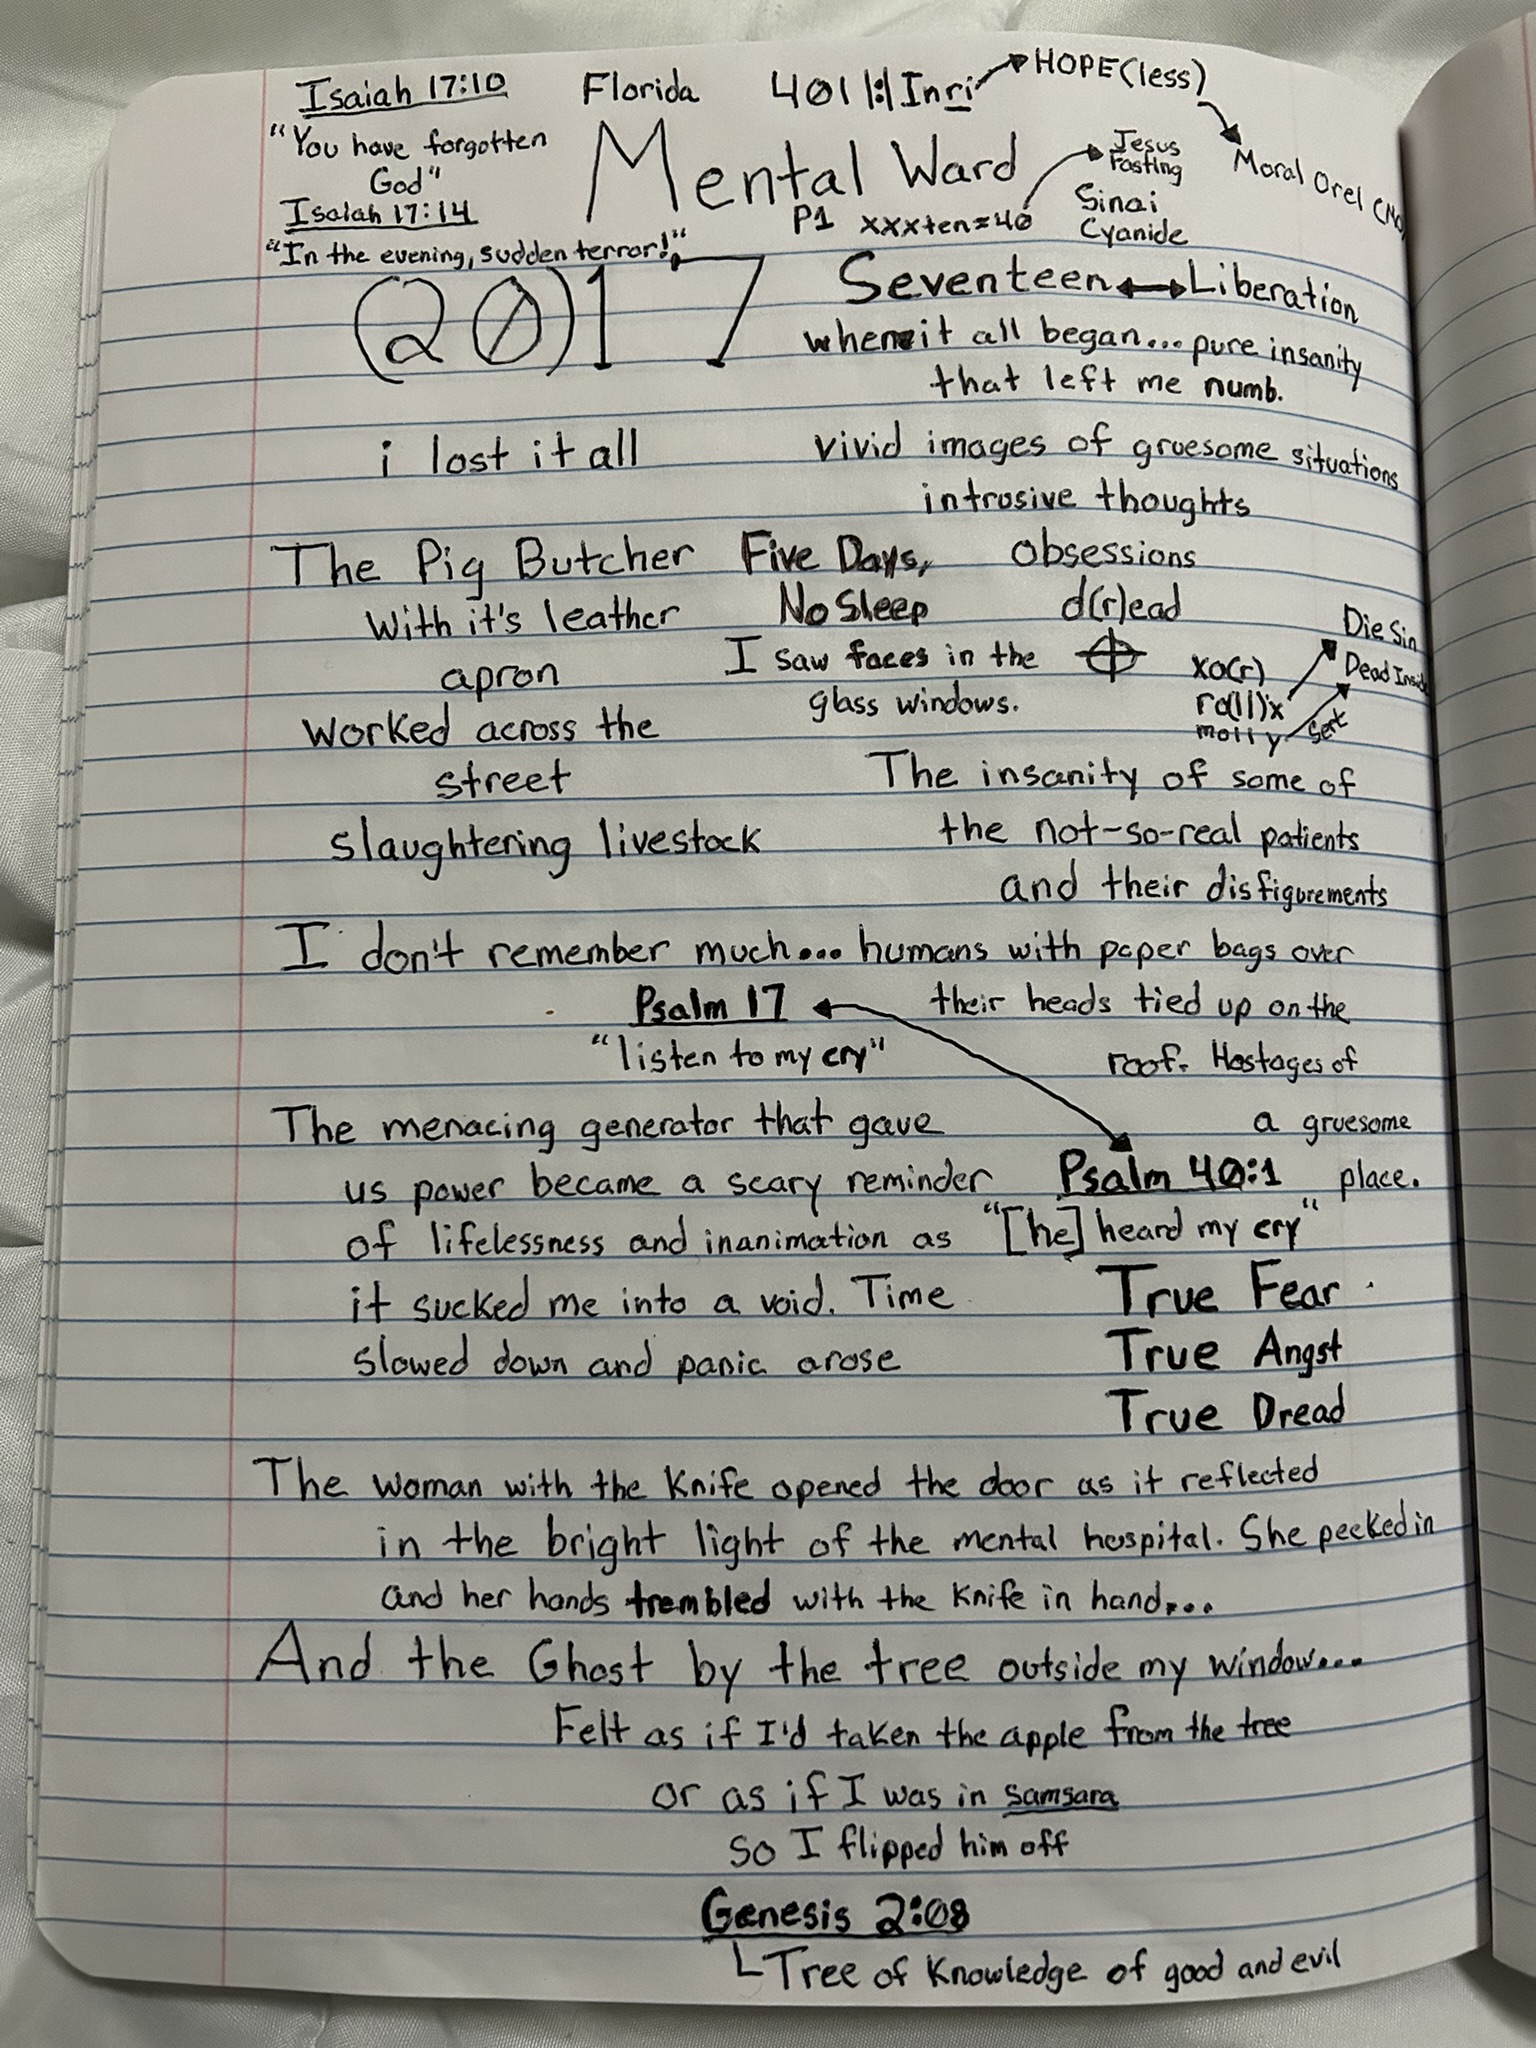 Isaiah 17:10
"You have forgotten
God"
Isaiah 17:14
"In the evening, sudden terror!"
Florida
401|:|Inri
HOPE(less)
Moral Orel
Mental Ward
P1 xxxten=40
Jesus
Fasting
Sinai
Cyanide
(20)17
Seventeen ↔ Liberation
when it all began... pure insanity
that left me numb.
i lost it all
vivid images of gruesome situations
intrusive thoughts
The Pig Butcher
With it's leather
apron
worked across the
street
slaughtering livestock
Five Days,
No Sleep
I saw faces in the
glass windows.
Obsessions
d(r)ead
xo(r)
ro(ll)x
molly
Sert
Die Sin
Dead Inside
The insanity of some of
the not-so-real patients
and their disfigurements
I don't remember much... humans with paper bags over
their heads tied up on the
roof. Hostages of
a gruesome
place.
Psalm 17
"listen to my cry"
Psalm 40:1
"[he] heard my cry"
The menacing generator that gave
us power became a scary reminder
of lifelessness and inanimation as
it sucked me into a void. Time
slowed down and panic arose
True Fear
True Angst
True Dread
The woman with the knife opened the door as it reflected
in the bright light of the mental hospital. She peeked in
and her hands trembled with the knife in hand...
And the Ghost by the tree outside my window...
Felt as if I'd taken the apple from the tree
or as if I was in samsara
so I flipped him off
Genesis 2:08
Tree of Knowledge of good and evil